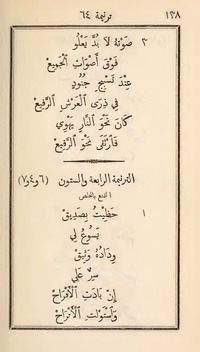 ١٣٨ ترنيمة ٦٤
٣ صَوْتُهُ لاَ بُدَّ يَعْلُو
فَوْقَ أَصْوَاتِ ٱلْجَمِيعْ
عِنْدَ تَسْبِيحِ جُنُودٍ
فِي ذُرَى ٱلْعَرْشِ ٱلرَّفِيعْ
كَانَ نَحْوَ ٱلنَّارِ يَهْوِي
فَٱرْتَقَى نَحْوَ ٱلرَّفِيعْ
الترنيمة الرابعة والستون (٦و٤و٧)
١ حَظَيْتُ بِصَدِيقْ
يَسُوعُ لِي
وِدَادُهُ وَثِيقْ
سِرٌّ عَلِي
إِنْ بَادَتِ ٱلْأَفْرَاحْ
وَٱسْتَوْلَتِ ٱلْأَتْرَاحْ